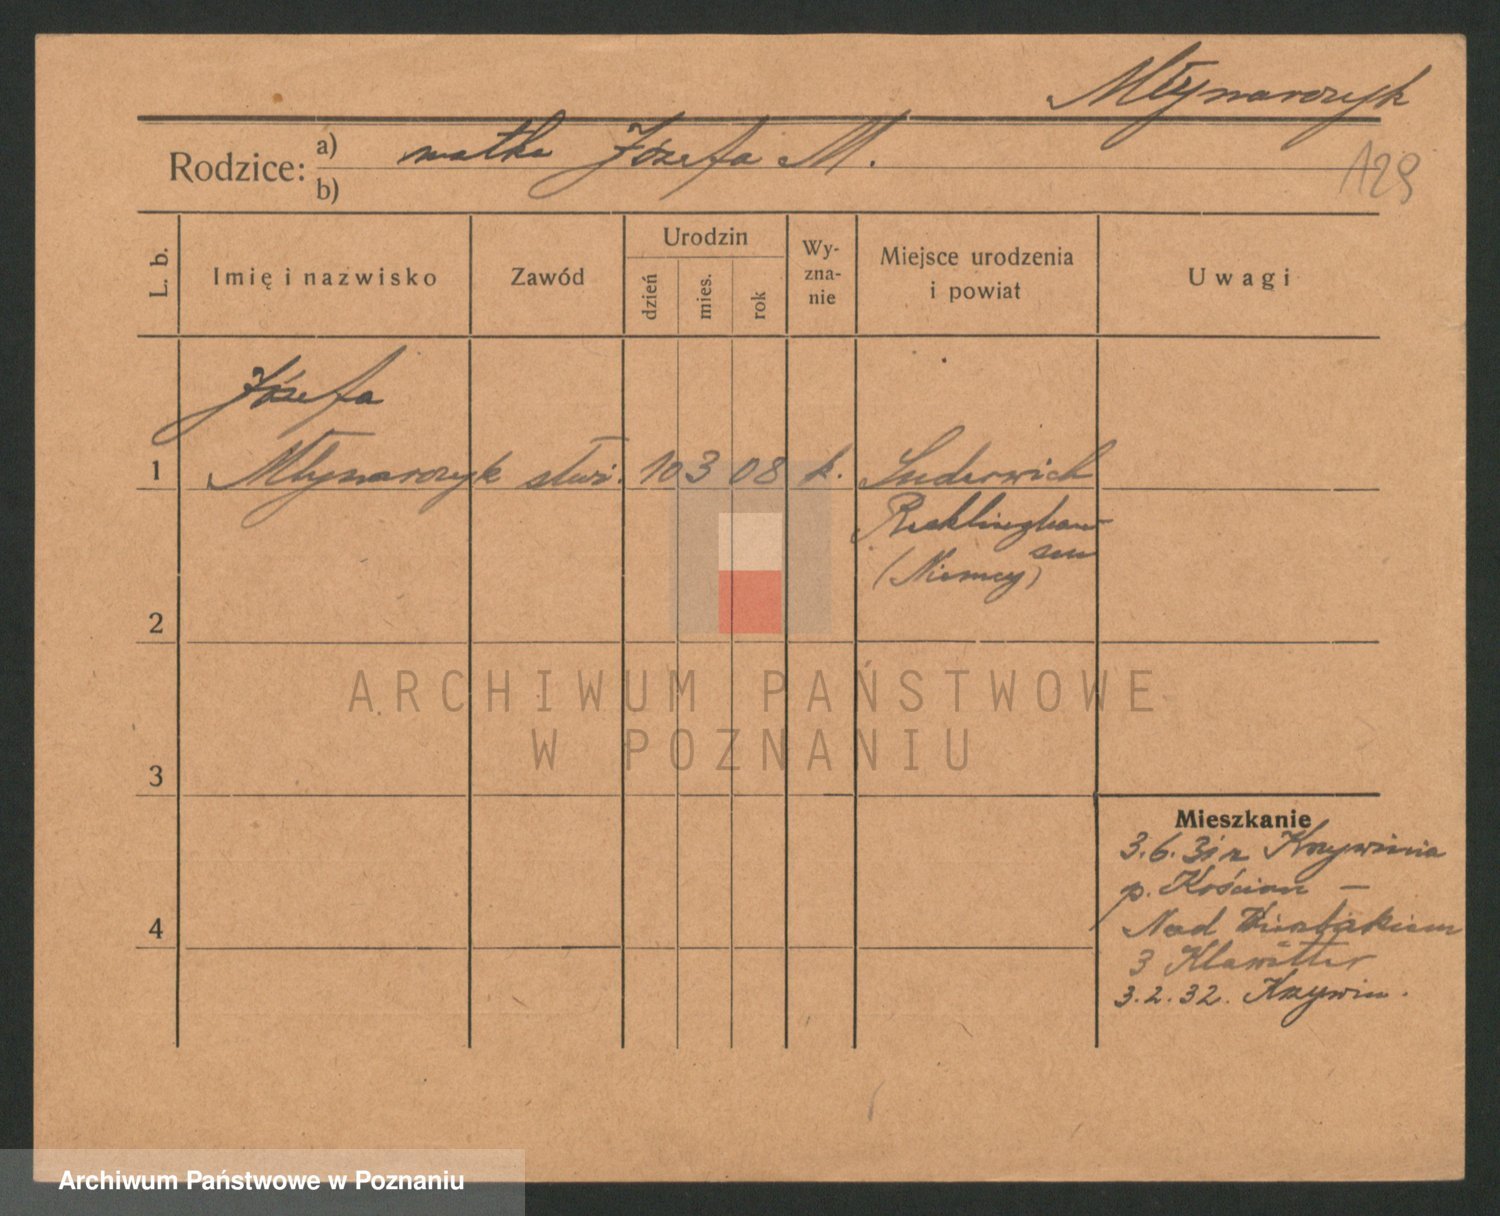 Młynarczyk
Rodzice: a) matka Józefa M.
b)
129
L. b.
Imię i nazwisko
Zawód
Urodzin
dzień
mies.
rok
Wy-
zna-
nie
Miejsce urodzenia
i powiat
Uwagi
Józefa
1 Młynarczyk służ. 10 3 08 k. Suderwich
Recklinghau-
sen
(Niemcy)
2
ARCHIWUM PAŃSTWOWE
W POZNANIU
3
Mieszkanie
3.6.31 z Krzywinia
p. Kościan –
4
Nad Wierzbakiem
3 Klawitter
3.2.32. Krzywin.
Archiwum Państwowe w Poznaniu